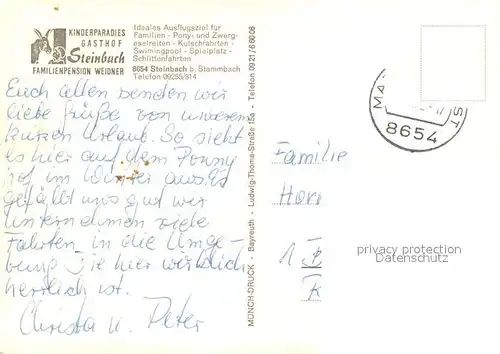 KINDERPARADIES
GASTHOF
Steinbach
FAMILIENPENSION WEIDNER
Ideales Ausflugsziel für
Familien - Pony- und Zwerg-
eselreiten - Kutschfahrten -
Swimingpool - Spielplatz -
Schlittenfahrten
8654 Steinbach b. Stammbach
Telefon 09255/314
Euch allen senden wir
liebe Grüße von unserem
kurzen Urlaub. So sieht
es hier auf dem Ponny
hof im Winter aus. Es
gefällt uns gut wir
unternehmen viele
Fahrten in die Umge-
bung die hier wirklich
herrlich ist.
Christa u. Peter
MÜNCH-DRUCK - Bayreuth - Ludwig-Thoma-Straße 15a - Telefon 0921/66006
MA
ST
8654
Familie
Horn
1 B
K
privacy protection
VINTAGE MEMORABILIA.COM